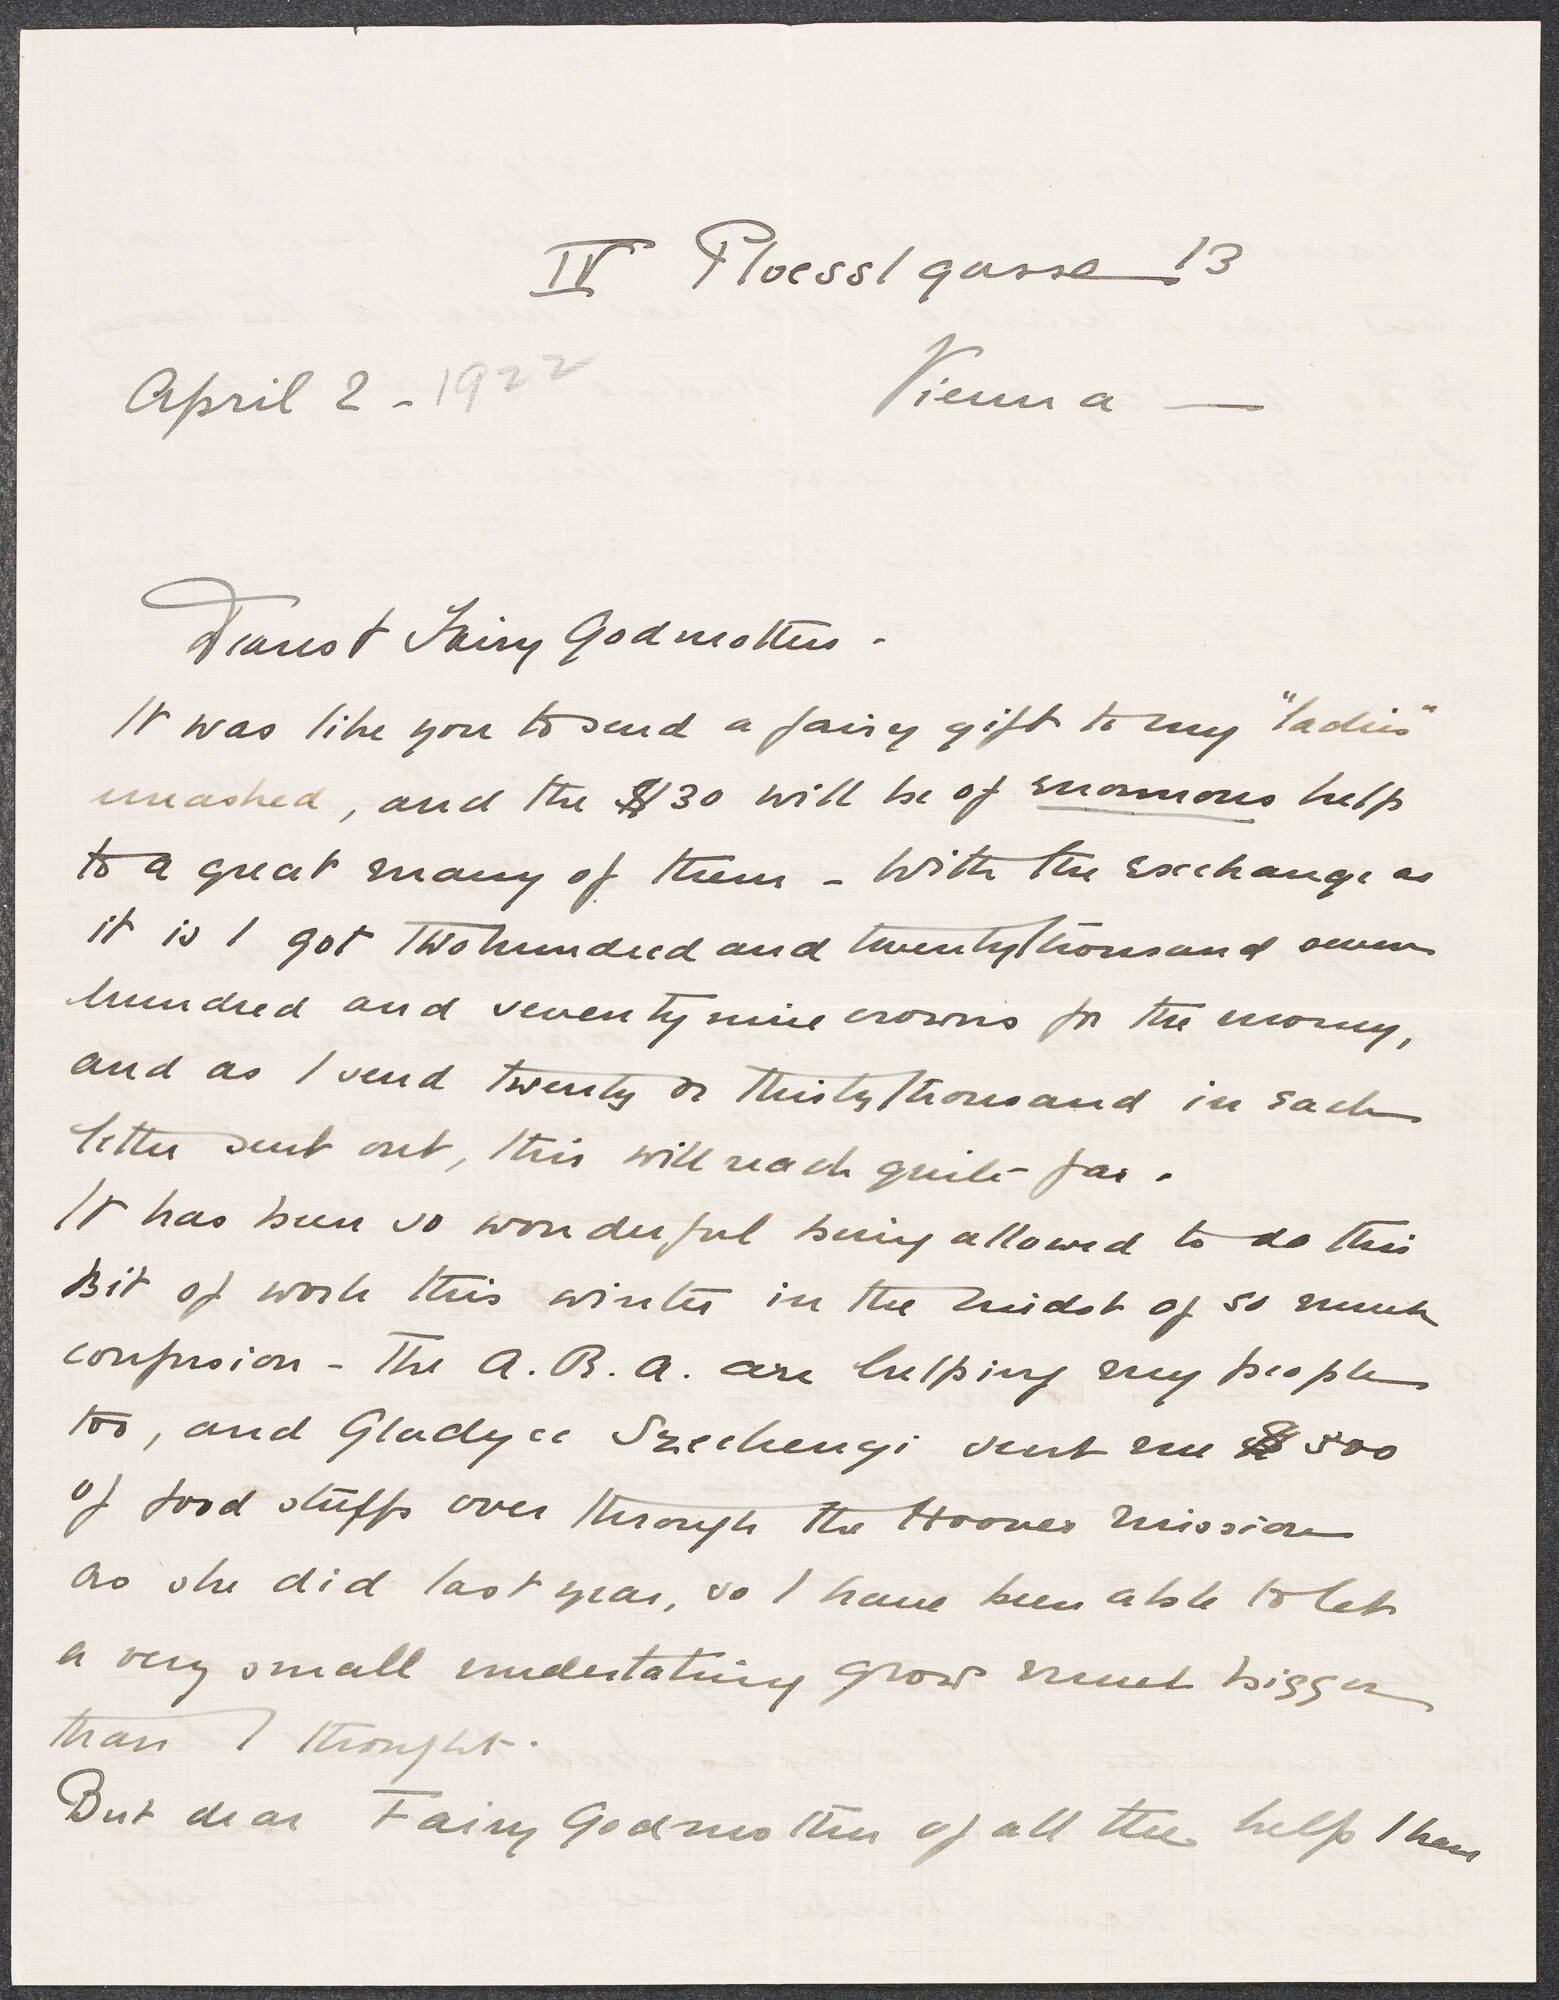 IV Ploesslgasse 13
April 2 - 1922 Vienna —
Dearest Fairy Godmother.
It was like you to send a fairy gift to my "ladies"
unasked, and the $30 will be of enormous help
to a great many of them - With the exchange as
it is I got two hundred and twenty thousand seven
hundred and seventy nine crowns for the money,
and as I send twenty or thirty thousand in each
letter sent out, this will reach quite far.
It has been so wonderful being allowed to do this
Bit of work this winter in the midst of so much
confusion - The A.R.A. are helping my people
too, and Gladyce Szechenyi sent me $500
of food stuffs over through the Hoover Mission
as she did last year, so I have been able to let
a very small undertaking grow much bigger
than I thought.
But dear Fairy Godmother of all the help I have